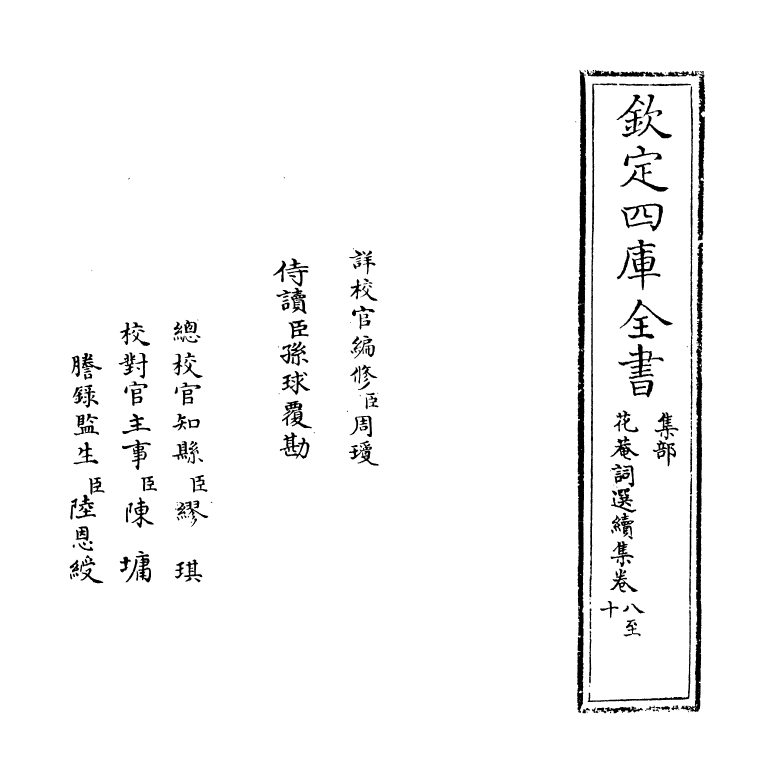 欽定四庫全書
集部
花菴詞選續集卷八至十
詳校官編修臣周瓊
侍讀臣孫球覆勘
總校官知縣臣繆琪
校對官主事臣陳墉
謄錄監生臣陸恩綬